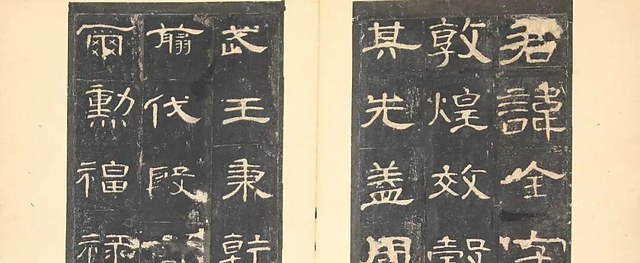 君諱全字
敦煌效穀
其先盖周
武王秉乾
翦伐殷
爾勳福祿